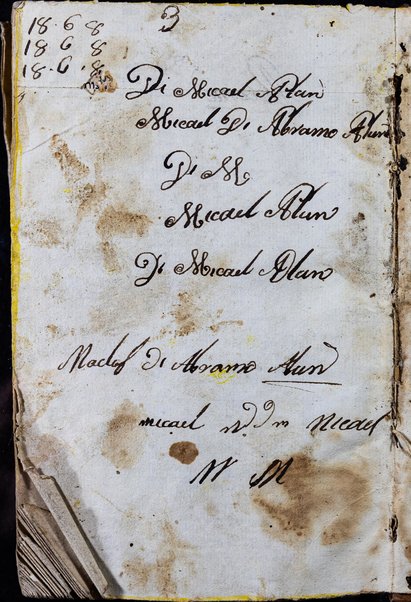 3
18 · 6 · 8
18 6 8
18 · 6 · 8
Di Micael Alun
Micael Di Abramo Alun
Di M
Micael Alun
Di Micael Alun
Di Abramo Alun
micael Micael
M